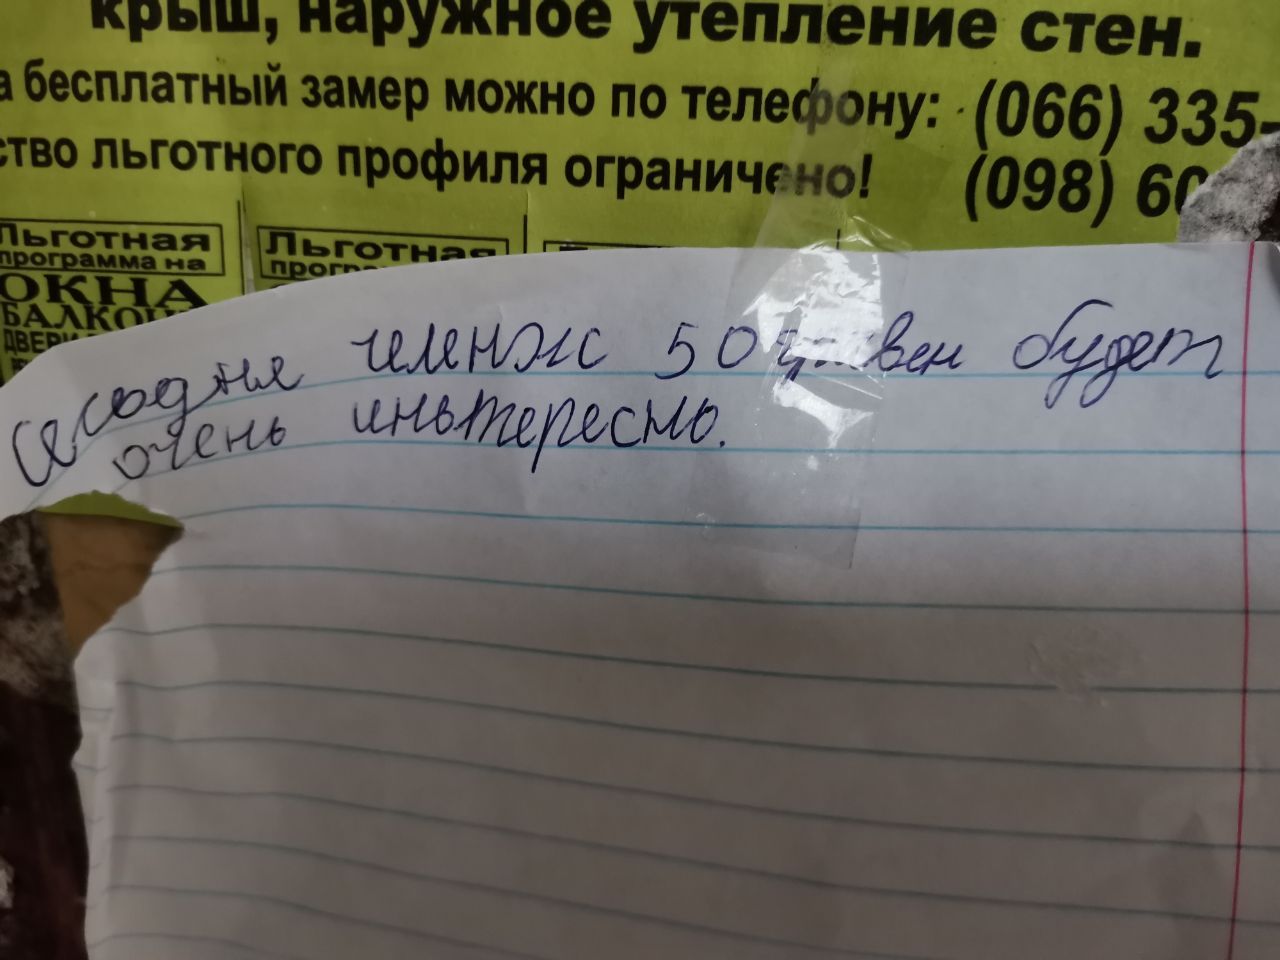 крыш, наружное утепление стен.
а бесплатный замер можно по телефону: (066) 335-
ство льготного профиля ограничено! (098) 60
Льготная
программа на
ОКНА
БАЛКОН
ДВЕРИ
Льготная
сегодня челенжс 50 гривен будет
очень иньтересно.